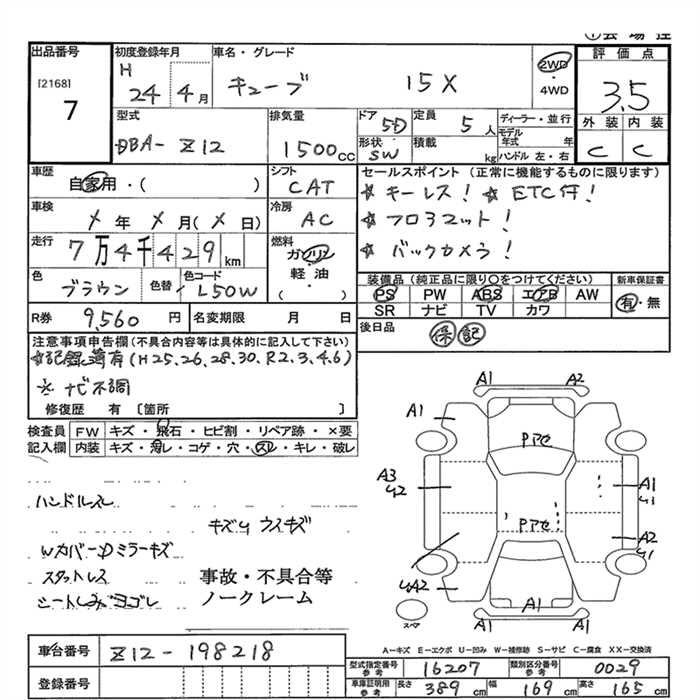 出品番号 [2168] 7
初度登録年月 H 24年 4月
車名・グレード キューブ 15X
2WD・4WD
評価点 3.5
外装 C 内装 C
型式 DBA-Z12
排気量 1500cc
ドア 5D
形状 SW
定員 5人
積載 kg
ディーラー・並行
モデル年式 年
ハンドル 左・右
車歴 自家用・( )
シフト CAT
セールスポイント (正常に機能するものに限ります)
☆ キーレス! ☆ ETC付!
☆ フロアマット!
☆ バックカメラ!
車検 メ年 メ月(メ日)
冷房 AC
走行 7万4千429km
燃料 ガソリン・軽油・( )
色 ブラウン 色替 色コード L50W
装備品 (純正品に限り○をつけてください)
PS PW ABS エアB AW
SR ナビ TV カワ
新車保証書 有・無
R券 9,560円
名変期限 月 日
後日品 保 記
注意事項申告欄 (不具合内容等は具体的に記入して下さい)
☆記録簿有(H25.26.28.30.R2.3.4.6)
※ ナビ不調
修復歴 有 [箇所 ]
検査員記入欄
FW キズ・飛石・ヒビ割・リペア跡・×要
内装 キズ・汚レ・コゲ・穴・スレ・キレ・破レ
ハンドルスレ
キズ凹 ウスキズ
Wカバー・Dミラーキズ
スタットレス
シートしみ ヨゴレ
事故・不具合等
ノークレーム
A1 A2
A1
Pアセ
A3
A1
Pアセ
A2
A2
A1 A1
スペア
A…キズ E…エクボ U…凹み W…補修跡 S…サビ C…腐食 XX…交換済
車台番号 Z12-198218
登録番号
型式指定番号 参考 16207
類別区分番号 参考 0029
車庫証明用 参考 長さ 389cm 幅 169cm 高さ 165cm